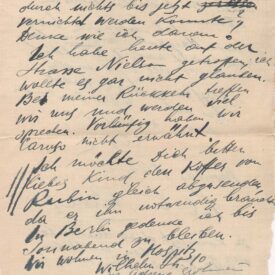 durch nichts bis jetzt
vernichtet werden konnte?
Denke wie ich darum?
Ich habe heute auf der
Strasse Nielsen getroffen, ich
wollte es gar nicht glauben.
Bei meiner Rückkehr treffen
wir uns und werden viel
sprechen. Vorläufig haben wir
Caruso nicht erwähnt.
Ich möchte Dich bitten
liebes Kind den Koffer von
Rubin gleich abzusenden,
da er ihn notwendig braucht.
In Berlin gedenke ich bis
Sonnabend zu bleiben.
Wir wohnen im Hospiz
Wilhelmstr.